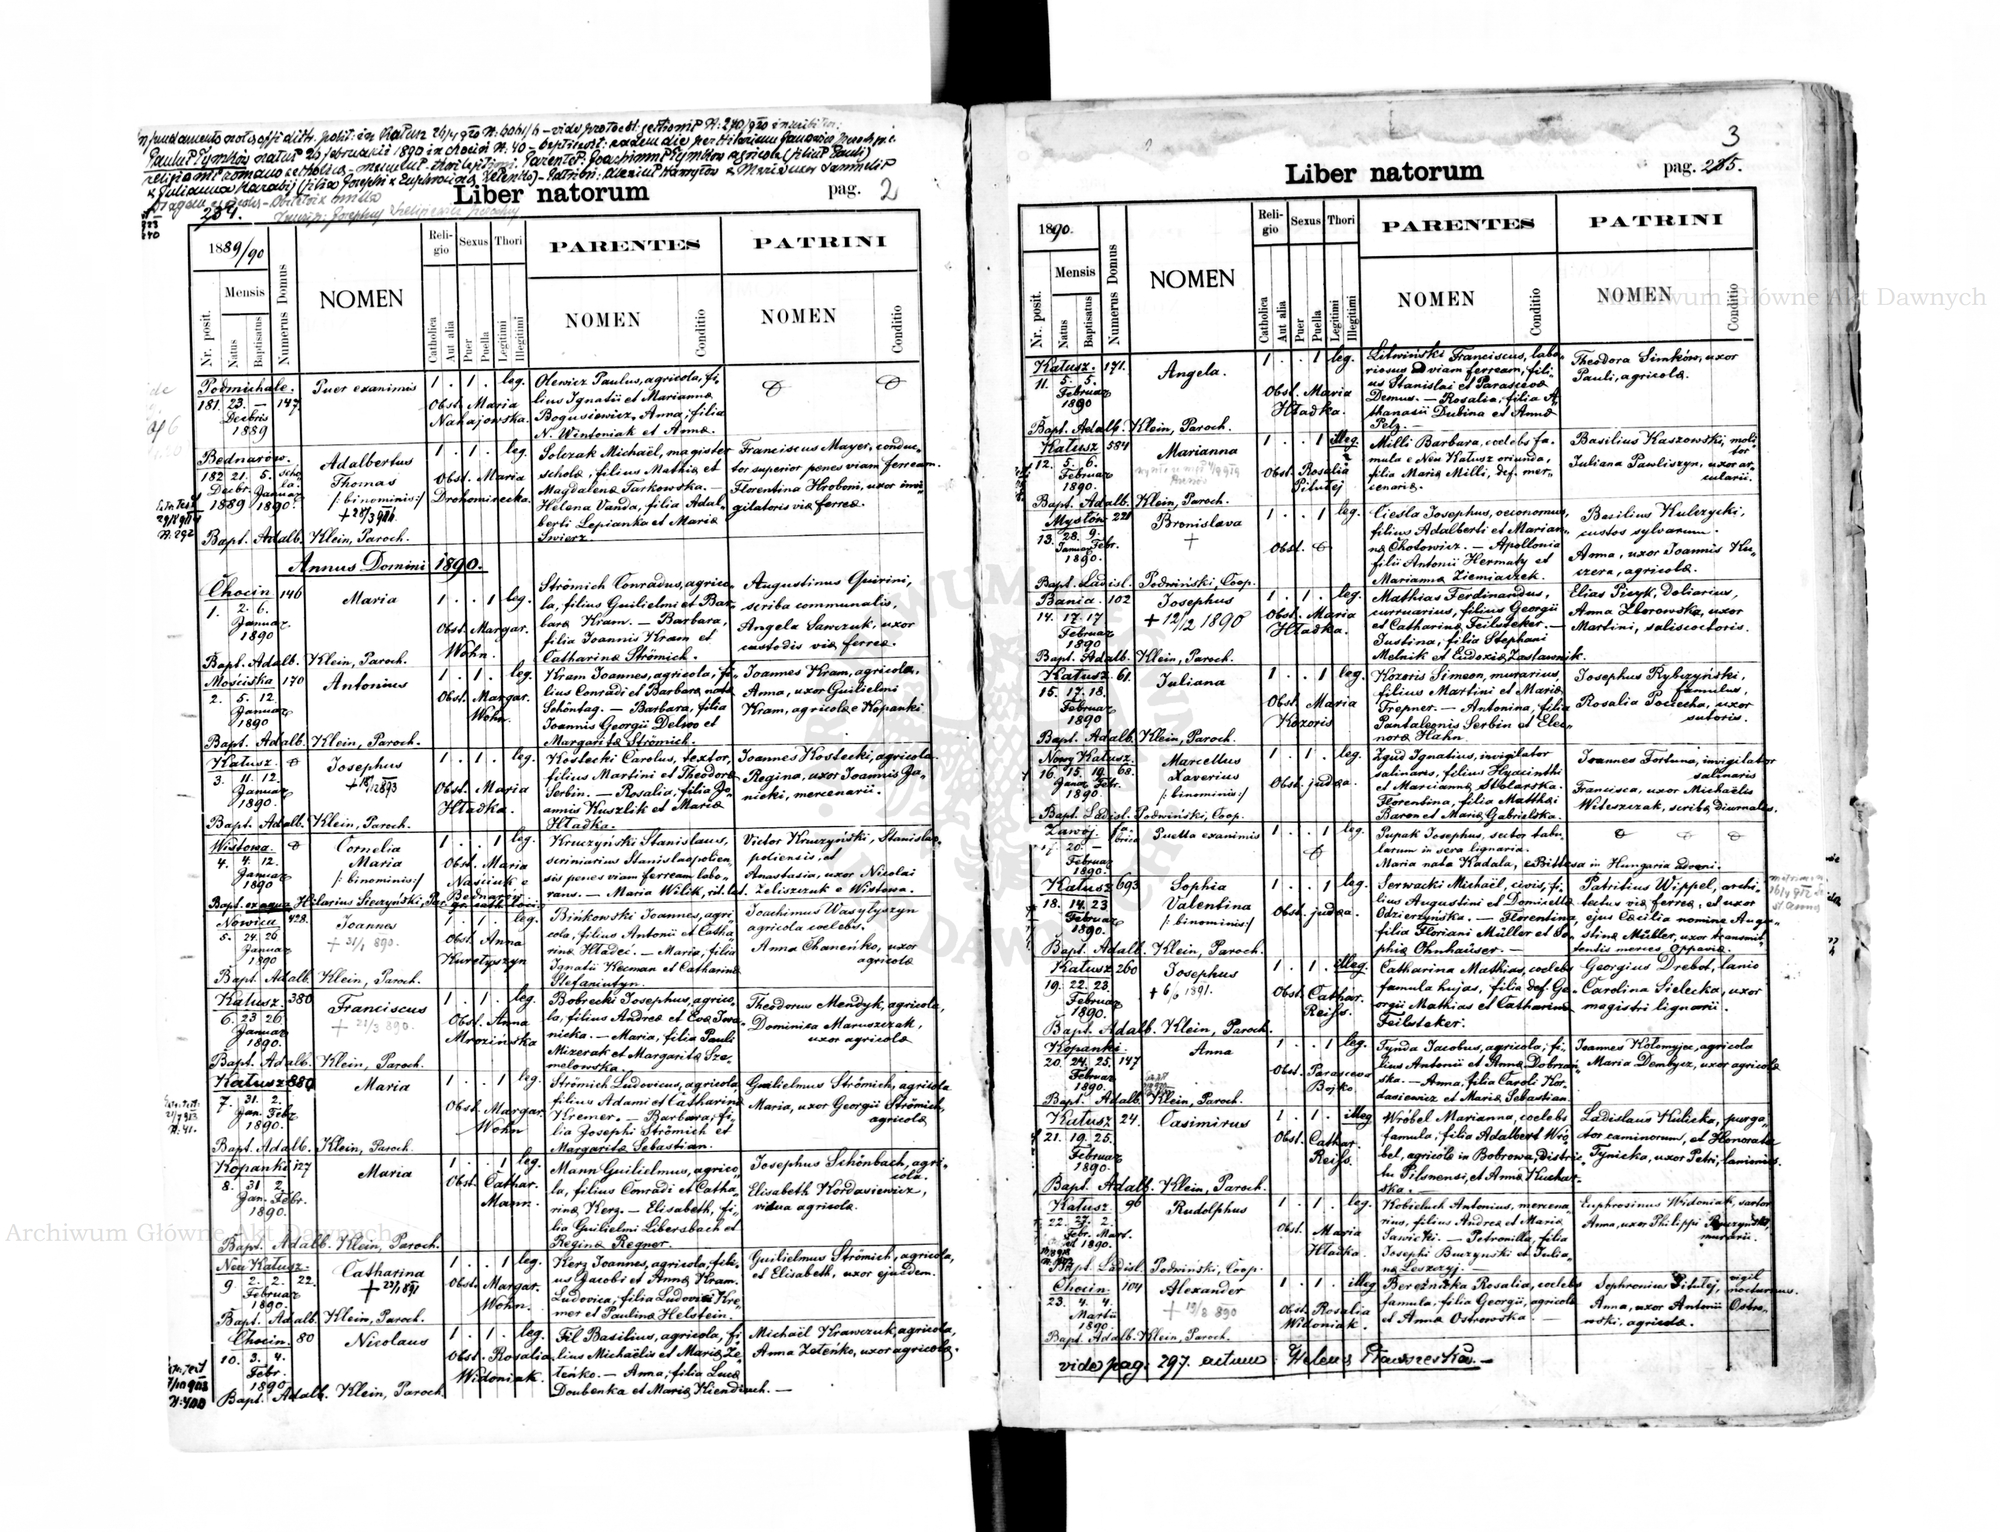 Liber natorum
pag. 2
284.
1889/90
Nr. posit.
Mensis
Natus
Baptisatus
Numerus Domus
NOMEN
Religio
Catholica
Aut alia
Sexus
Puer
Puella
Thori
Legitimi
Illegitimi
PARENTES
NOMEN
Conditio
PATRINI
NOMEN
Conditio
Podmichale.
181. 23. — 147.
Decbris
1889
Puer exanimis
1 . 1 . leg.
Obst. Maria
Nahajowska.
Olewicz Paulus, agricola, fi-
lius Ignatii et Mariannæ
Bogusiewicz, Anna, filia
N. Wintoniak et Annæ.
Bednarów.
182 21. 5. scho-
Decbr. Januar la.
1889 1890.
Adalbertus
Thomas
/: binominis:/
1 . 1 . leg.
Obst. Maria
Drohomirecka.
Solczak Michaël, magister
scholæ, filius Mathiæ et
Magdalenæ Tarkowska.
Helena Vanda, filia Adal-
berti Lepianka et Mariæ
Swierz.
Franciscus Mayer, conduc-
tor superior penes viam ferream.
Florentina Hroboni, uxor invi-
gilatoris viæ ferreæ.
Bapt. Adalb. Klein, Paroch.
Annus Domini 1890.
Chocin 146
1. 2. 6.
Januar
1890
Maria
1 . . 1 leg.
Obst. Margar.
Wohn.
Strömich Conradus, agrico-
la, filius Guilielmi et Bar-
baræ Kram. — Barbara,
filia Joannis Kram et
Catharinæ Strömich.
Augustinus Quirini,
scriba communalis,
Angela Sawczuk, uxor
custodis viæ ferreæ.
Bapt. Adalb. Klein, Paroch.
Mościska 170
2. 5. 12.
Januar
1890
Antonius
1 . 1 . leg.
Obst. Margar.
Wohn.
Kram Joannes, agricola, fi-
lius Conradi et Barbaræ natæ
Schöntag. — Barbara, filia
Joannis Georgii Delwo et
Margaritæ Strömich.
Joannes Kram, agricola,
Anna, uxor Guilielmi
Kram, agricolæ e Kopanki
Bapt. Adalb. Klein, Paroch.
Kałusz.
3. 11. 12.
Januar
1890.
Josephus
1 . 1 . leg.
Obst. Maria
Hładka.
Kostecki Carolus, textor,
filius Martini et Theodoræ
Serbin. — Rosalia, filia Jo-
annis Kuszlik et Mariæ
Hładka.
Joannes Kostecki, agricola
Regina, uxor Joannis Ja-
nicki, mercenarii.
Bapt. Adalb. Klein, Paroch.
Wistowa.
4. 4. 12.
Januar
1890
Cornelia
Maria
/: binominis:/
1 . . 1 leg.
Obst. Maria
Nasiiuk e
Kruczyński Stanislaus,
scriniarius Stanislaopolien-
sis penes viam ferream labo-
rans. — Maria Wilik, rit. lat.
Victor Kruczyński, Stanislao-
poliensis, et
Anastasia, uxor Nicolai
Żeliszczuk e Wistowa.
Bapt. ex aqua Hilarius Sieczyński,
Nowica 428.
5. 24. 26
Januar
1890
Joannes
+ 31/1 890.
1 . 1 . leg.
Obst. Anna
Kuretyszyn
Bińkowski Joannes, agri-
cola, filius Antonii et Catha-
rinæ Hładeć. — Maria, filia
Ignatii Kecman et Catharinæ
Stefaniutyn.
Joachimus Wasylyszyn
agricola coelebs.
Anna Chaneńko, uxor
agricolæ
Bapt. Adalb. Klein, Paroch.
Kałusz. 380
6. 23 26.
Januar
1890.
Franciscus
+ 21/3 890.
1 . 1 . leg.
Obst. Anna
Mrozińska
Bobrecki Josephus, agrico-
la, filius Andreæ et Evæ Iwa-
nicka. — Maria, filia Pauli
Mizerak et Margaritæ Sze-
melowska.
Theodorus Mendyk, agricola,
Dominica Maruszczak,
uxor agricolæ
Bapt. Adalb. Klein, Paroch.
Kałusz 880
7. 31. 2.
Jan. Febr.
1890.
Maria
1 . . 1 leg.
Obst. Margar.
Wohn
Strömich Ludovicus, agricola
filius Adami et Catharinæ
Kremer. — Barbara, fi-
lia Josephi Strömich et
Margaritæ Sebastian.
Guilielmus Strömich, agricola
Maria, uxor Georgii Strömich,
agricolæ
Bapt. Adalb. Klein, Paroch.
Kopanki 127
8. 31 2.
Jan. Febr.
1890.
Maria
1 . . 1 leg.
Obst. Cathar.
Mann.
Mann Guilielmus, agrico-
la, filius Conradi et Catha-
rinæ Kerz. — Elisabeth, fi-
lia Guilielmi Libersbach et
Reginæ Regner.
Josephus Schönbach, agri-
cola.
Elisabeth Kordasiewicz,
vidua agricolæ.
Bapt. Adalb. Klein, Paroch.
Neu Kałusz.
9 2. 2. 22.
Februar
1890.
Catharina
1 . . 1 leg.
Obst. Margar.
Wohn.
Kerz Joannes, agricola, fili-
us Jacobi et Annæ Kram.
Ludovica, filia Ludovici Kre-
mer et Paulinæ Helstein.
Guilielmus Strömich, agricola,
et Elisabeth, uxor ejusdem.
Bapt. Adalb. Klein, Paroch.
Chocin. 80
10. 3. 4.
Febr.
1890
Nicolaus
1 . 1 . leg.
Obst. Rosalia
Widoniak.
Fil Basilius, agricola, fi-
lius Michaëlis et Mariæ Ze-
leńko. — Anna, filia Lucæ
Doubenka et Mariæ Kiendiuch. —
Michaël Krawczuk, agricola,
Anna Zeleńko, uxor agricolæ.
Bapt. Adalb. Klein, Paroch.
3
Liber natorum
pag. 285.
1890.
Nr. posit.
Mensis
Natus
Baptisatus
Numerus Domus
NOMEN
Religio
Catholica
Aut alia
Sexus
Puer
Puella
Thori
Legitimi
Illegitimi
PARENTES
NOMEN
Conditio
PATRINI
NOMEN
Conditio
Kałusz. 171.
11. 5. 5.
Februar
1890
Angela.
1 . . 1 leg.
Obst. Maria
Hładka.
Litwiński Franciscus, labo-
riosus viam ferream, fili-
us Stanislai et Parascevæ
Demus. — Rosalia, filia A-
thanasii Dubina et Annæ
Pelz. —
Theodora Simków, uxor
Pauli, agricolæ.
Bapt. Adalb. Klein, Paroch.
Kałusz 584
12. 5. 6.
Februar
1890.
Marianna
1 . . 1 illeg.
Obst. Rosalia
Pitułej
Milli Barbara, coelebs fa-
mula e Neu Kałusz oriunda,
filia Mariæ Milli, def. mer-
cenariæ.
Basilius Kaszowski, moli-
tor
Juliana Pawliszyn, uxor ar-
cularii.
Bapt. Adalb. Klein, Paroch.
Mysłów 221
13. 28. 9.
Januar Febr.
1890.
Bronislava
+
1 . . 1 leg.
Obst.
Ciesla Josephus, oeconomus,
filius Adalberti et Marian-
næ Chotowicz. — Apollonia
filia Antonii Hermaty et
Mariannæ Ziemiaczek.
Basilius Kulczycki,
custos sylvarum.
Anna, uxor Joannis Ku-
czera, agricolæ.
Bapt. Ladisl. Podwiński, Coop.
Bania. 102
14. 17. 17
Februar
1890
Josephus
1 . 1 . leg.
Obst. Maria
Hładka.
Mathias Ferdinandus,
curruarius, filius Georgii
et Catharinæ Feilsteker. —
Justina, filia Stephani
Melnik et Eudoxiæ Zastawnik.
Elias Picyk, Doliarius,
Anna Zborowska, uxor
Martini, saliscoctoris.
Bapt. Adalb. Klein, Paroch.
Kałusz 61.
15. 17. 18.
Februar
1890
Juliana
1 . . 1 leg.
Obst. Maria
Kozoris
Kozoris Simeon, murarius,
filius Martini et Mariæ
Trepner. — Antonina, filia
Pantaleonis Serbin et Eleo-
noræ Hahn.
Josephus Rybczyński,
famulus,
Rosalia Pociecha, uxor
sutoris.
Bapt. Adalb. Klein, Paroch.
Nowy Kałusz.
16. 15. 19. 68.
Januar Febr.
1890.
Marcellus
Xaverius
/: binominis:/
1 . 1 . leg.
Obst. judæa.
Zgud Ignatius, invigilator
salinares, filius Hyacinthi
et Marciannæ Stolarska.
Florentina, filia Matthæi
Baron et Mariæ Gabrielska.
Joannes Fortuna, invigilator
salinaris
Francisca, uxor Michaëlis
Witeszczak, scribæ diurnalis.
Bapt. Ladisl. Podwiński, Coop.
Zawój.
17. 20. —
Februar
1890.
Puella exanimis
1 . . 1 leg.
Pupak Josephus, sector tabu-
larum in sera lignaria.
Maria nata Kadala, e Bittesa in Hungaria
Kałusz 693
18. 14. 23
Februar
1890.
Sophia
Valentina
/: binominis:/
1 . . 1 leg.
Obst. judæa.
Serwacki Michaël, civis, fi-
lius Augustini et Domicellæ
Odzierzyńska. — Florentina,
filia Floriani Müller et So-
phiæ Ohnhäuser. —
Patritius Wippel, archi-
tectus viæ ferreæ, et uxor
ejus Cæcilia nomine Augu-
stinæ Mübler, uxor transmit-
tentis merces, Oppavia.
Bapt. Adalb. Klein, Paroch.
Kałusz 260
19. 22. 23.
Februar
1890.
Josephus
1 . 1 . illeg.
Obst. Cathar.
Reiss.
Catharina Mathias, coelebs
famula hujas, filia def. Ge-
orgii Mathias et Catharinæ
Feilsteker.
Georgius Drebot, lanio
Carolina Sielecka, uxor
magistri lignarii.
Bapt. Adalb. Klein, Paroch.
Kopanki.
20. 24. 25. 147
Februar
1890.
Anna
1 . . 1 leg.
Obst. Parasceva
Bojko.
Tynda Jacobus, agricola, fi-
lius Antonii et Annæ Dobrzań-
ska. — Anna, filia Caroli Kor-
dasiewicz et Mariæ Sebastian.
Joannes Kołomyjec, agricola
Maria Dembycz, uxor agricolæ
Bapt. Adalb. Klein, Paroch.
Kałusz 24.
21. 19. 25.
Februar
1890.
Casimirus
1 . 1 . illeg
Obst. Cathar.
Reiss.
Wróbel Marianna, coelebs
famula, filia Adalberti Wró-
bel, agricolæ in Bobrowa, distric-
tu Pilsnensi, et Annæ Kuchar-
ska. —
Ladislaus Kulicka, purga-
tor caminorum, et Honorata
Tynicka, uxor Petri, lanionis.
Bapt. Adalb. Klein, Paroch.
Kałusz 96
22. 27. 2.
Febr. Mart.
1890.
Rudolphus
1 . 1 . leg.
Obst. Maria
Hładka.
Kobieluch Antonius, mercena-
rius, filius Andreæ et Mariæ
Sawicki. — Petronilla, filia
Josephi Buczynski et Julia-
næ Leszczyj. —
Euphrosinus Widoniak, sartor
Anna, uxor Philippi Buczyński,
murarii.
Bapt. Ladisl. Podwiński, Coop.
Chocin. 104
23. 4. 4.
Martii
1890.
Alexander
+ 13/8 890
1 . 1 . illeg
Obst. Rosalia
Widoniak.
Bereźnicka Rosalia, coelebs
famula, filia Georgii, agricolæ
et Annæ Ostrowska. —
Sophronius Pitułej, vigil
nocturnus.
Anna, uxor Antonii Ostro-
wski, agricolæ.
Bapt. Adalb. Klein, Paroch.
vide pag. 297. actum
Archiwum Główne Akt Dawnych
Archiwum Główne Akt Dawnych